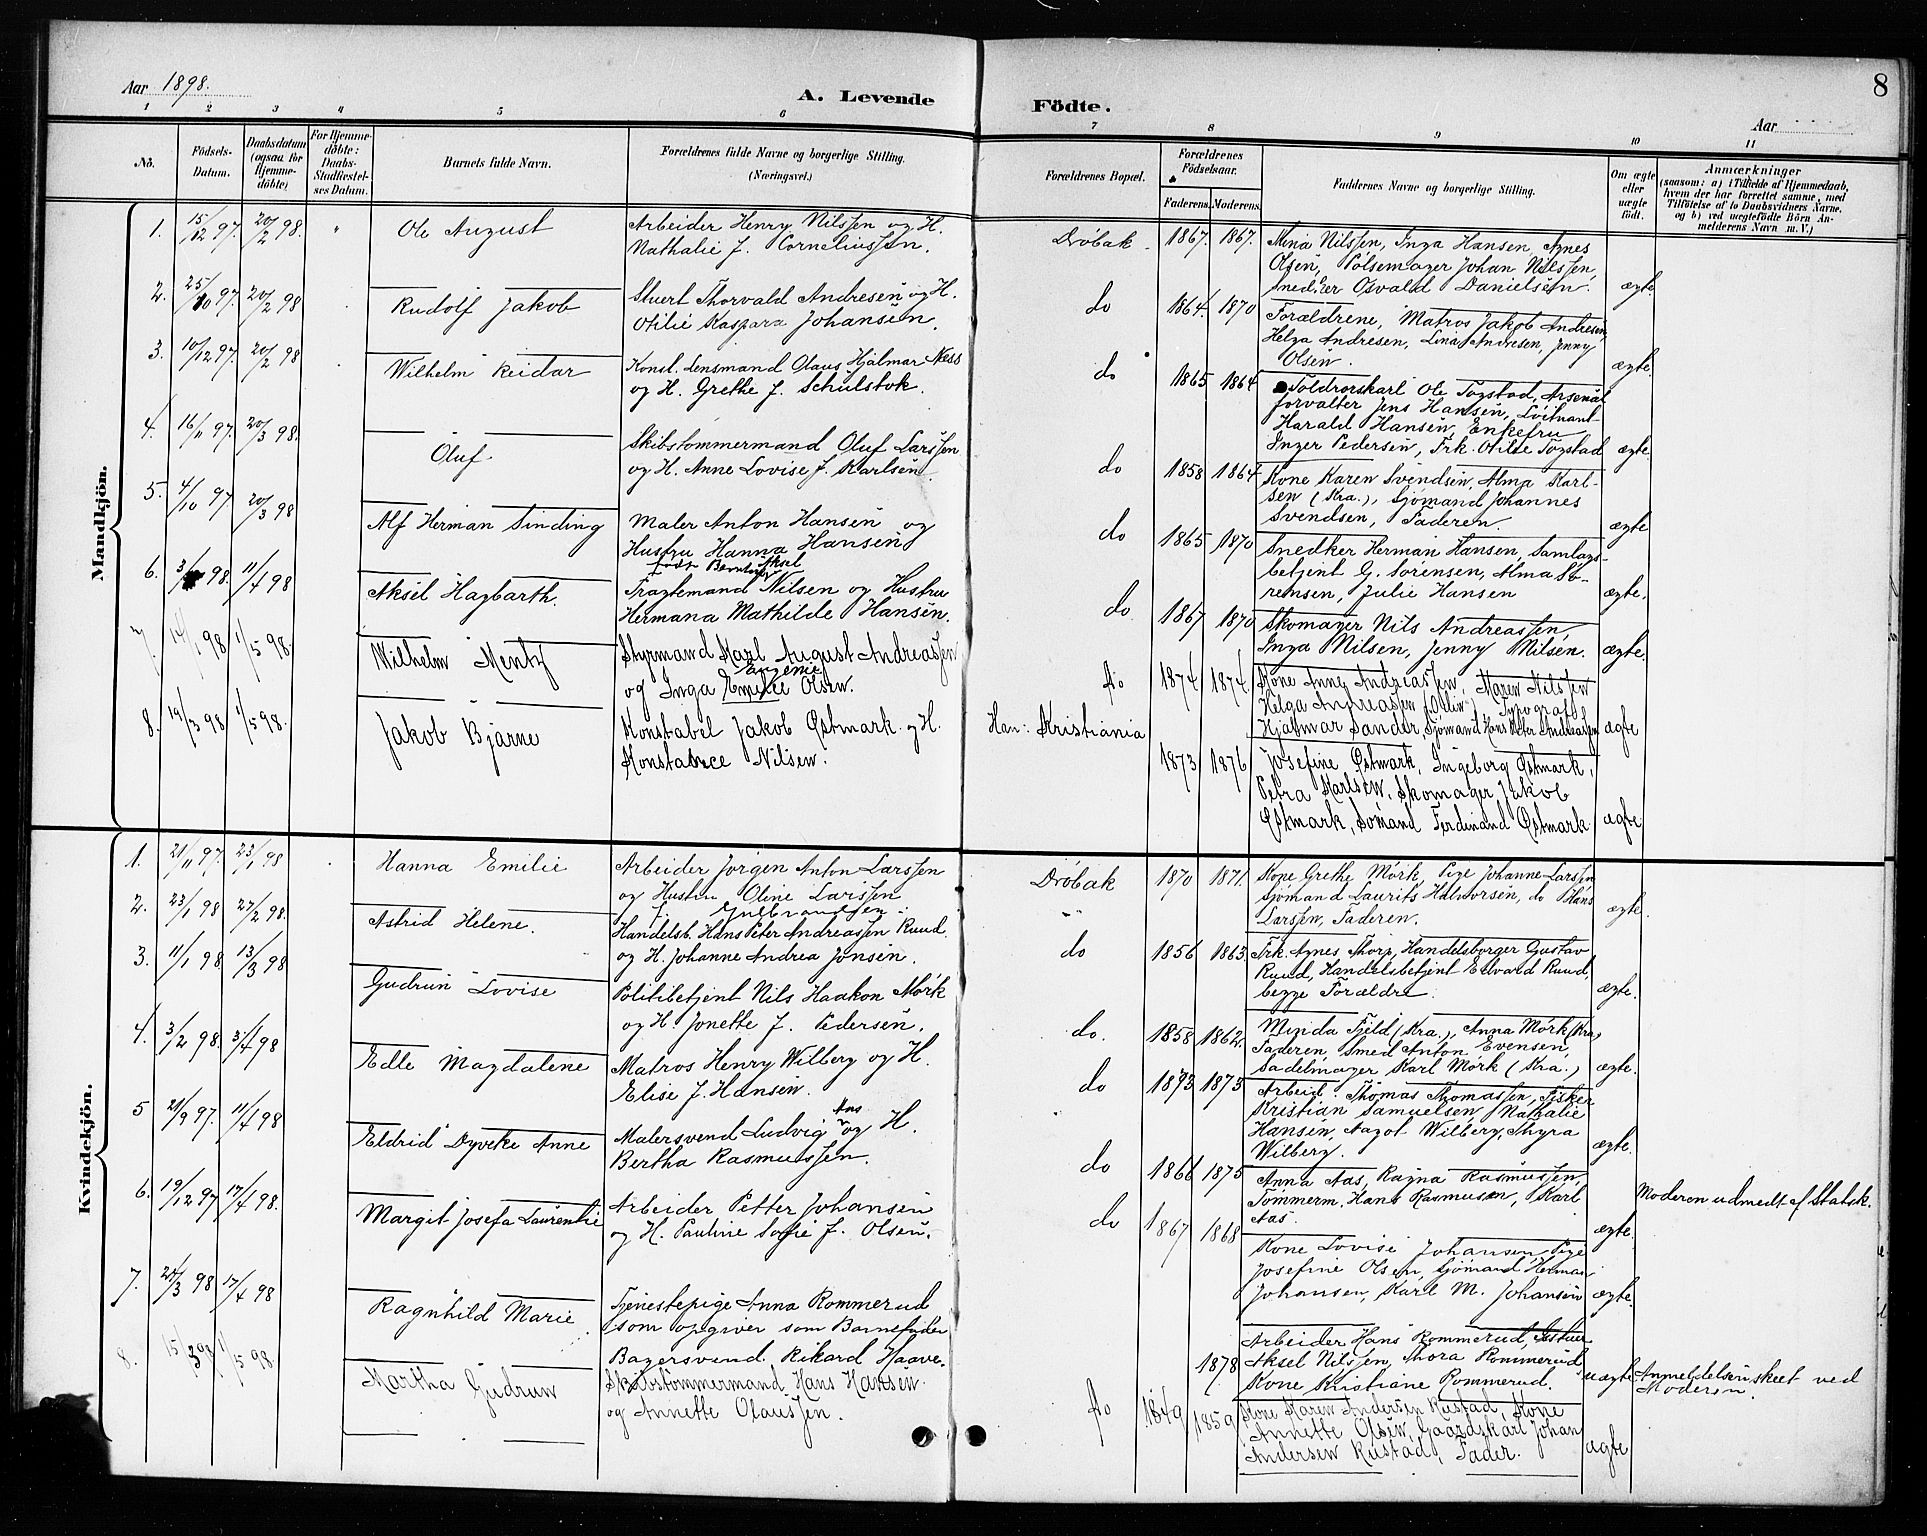 Aar 1898.
A. Levende
Födte.
8
Aar
1 2 3 4 5 6 7 8 9 10 11
No.
Födsels-
Datum.
Daabsdatum
(ogsaa for
Hjemme-
döbte)
For Hjemme-
döbte:
Daabs-
Stadfæstel-
ses Datum.
Barnets fulde Navn.
Forældrenes fulde Navne og borgerlige Stilling.
(Næringsvei.)
Forældrenes Bopæl.
Forældrenes
Födselsaar.
Faderens. Moderens.
Faddernes Navne og borgerlige Stilling.
Om ægte
eller
uægte
födt.
Anmærkninger
(saasom: a) i Tilfælde af Hjemmedaab,
hvem der har forrettet samme, med
Tilföielse af to Daabsvidners Navne.
og b) ved uægtefödte Börn An-
melderens Navn m. V.)
Mandkjön.
1. 15/12 97. 20/2 98. " Ole August
Arbeider Henry Nilssen og H.
Nathalie f. Corneliussen.
Dröbak. 1867. 1867.
Mina Nilssen, Inga Hansen, Agnes
Olsen, Pölsemager Johan Nilssen,
Snedker Osvald Danielsen.
ægte
2. 25/10 97. 20/2 98 Rudolf Jakob
Stuert Thorvald Andresen og H.
Otilie Kaspara Johansen.
do 1864. 1870
Forældrene, Matros Jakob Andresen,
Helga Andresen, Lina Andresen, Jenny
Olsen.
ægte.
3. 10/12 97. 20/2 98 Wilhelm Reidar
Konst. Lensmand Olaus Hjalmar Ness
og H. Grethe f. Schulstok.
do 1865 1864
Toldrorskarl Ole Togstad, Arsenal
forvalter Jens Hansen, Löitnant
Harald Hansen, Enkefru
Inger Pedersen, Frk. Otilde Togstad
ægte.
4. 16/11 97. 20/3 98. Oluf
Skibstömmermand Oluf Larssen
og H. Anne Lovise f. Karlsen.
do 1858 1864
Kone Karen Svendsen, Alma Karl-
sen (Kra.), Sjömand Johannes
Svendsen, Faderen.
ægte
5. 4/10 97. 20/3 98 Alf Herman Sinding
Maler Anton Hansen og
Hustru Hanna Hansen
do 1865 1870
Snedker Herman Hansen, Samlags-
betjent G. Sörensen, Alma Sö-
rensen, Julie Hansen
ægte.
6. 98. 11/4 98 Aksel Hagbarth.
Aksel
Fragtemand Nilsen og Hustru
Hermana Mathilde Hansen.
do 1867 1870
Skomager Nils Andreassen,
Inga Nilsen, Jenny Nilsen.
ægte.
7. 14/1 98 1/5 98. Wilhelm Mentz
Styrmand Karl August Andreassen
og Inga Emilie Olsen.
do 1874 1874.
Kone Anne Andreassen, Maren Nilssen
Helga Andreassen (Olsen) Typograf
Hjalmar Sander, Sjömand Hans Peter Andreassen
ægte
8. 19/3 98 1/5 98. Jakob Bjarne
Konstabel Jakob Østmark. og H.
Konstance Nilsen.
Han: Kristiania 1873 1876
Josefine Østmark, Ingeborg Østmark,
Petra Karlsen, Skomager Jakob
Østmark, Sömand Ferdinand Østmark
ægte
Kvindekjön.
1. 21/11 97. 23/1 98 Hanna Emilie
Arbeider Jörgen Anton Larssen
og Hustru Oline Larssen
f. Gulbrandsen.
Dröbak 1870 1871.
Kone Grethe Mörk, Pige Johanne Larssen
Sjömand Laurits Halvorsen, do Hans
Larssen, Faderen.
ægte.
2. 23/1 98 27/2 98. Astrid Helene.
Handelsb. Hans Peter Andreassen Ruud
og H. Johanne Andrea Jonsen.
do 1856 1863.
Frk. Agnes Thorp, Handelsborger Gustav
Ruud, Handelsbetjent Edvard Ruud,
begge Forældre.
ægte.
3. 11/1 98 13/3 98 Gudrun Lovise
Politibetjent Nils Haakon Mörk
og H. Jonette f. Pedersen.
do. 1858 1862.
Minda Fjeld (Kra.), Anna Mörk (Kra)
Faderen, Smed Anton Evensen,
Sadelmager Karl Mörk (Kra.)
ægte.
4. 3/2 98. 3/4 98 Edle Magdalene
Matros Henry Wilberg og H.
Elise f. Hansen.
do 1873 1873
Arbeid. Thomas Thomassen, Fisker
Kristian Samuelsen, Nathalie
Hansen, Aagot Wilberg, Thyra
Wilberg.
ægte.
5 21/9 97. 11/4 98 Eldrid Dyveke Anne
Malersvend Ludvig Aas og H.
Bertha Rasmussen.
do 1866 1875
Anna Aas, Ragna Rasmussen,
Tömmerm. Hans Rasmusen, Karl
Aas.
ægte.
Moderen udmedt af Statsk.
6. 19/12 97 17/4 98. Margit Josefa Laurentie
Arbeider Petter Johansen
og H. Pauline Sofie f. Olsen.
do 1867 1868
Kone Lovise Johansen, Pige
Josefine Olsen, Sjömand Herman
Johansen, Karl M. Johansen
ægte.
7. 24/3 98 17/4 98 Ragnhild Marie
Tjenestepige Anna Rommerud
som opgiver som Barnefader
Bagersvend Rikard Haave.
1878
Arbeider Hans Rommerud,
Aksel Nilssen, Thora Rommerud
Kone Kristiane Rommerud.
uægte
Anmeldelsen skeet ved
Moderen.
8. 15/3 98 1/5 98 Martha Gudrun
Skibstömmermand Hans Hansen
og Annette Olaussen.
do 1849 1859
Kone Karen Andersen Rustad, Kone
Annette Olsen, Gaardskarl Johan
Andersen Rustad, Fader.
ægte